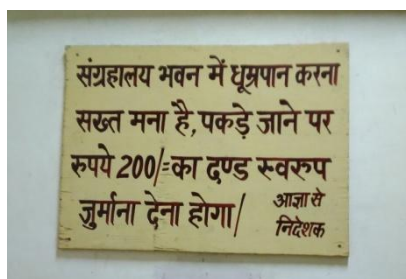 संग्रहालय भवन में धूम्रपान करना
सख्त मना है, पकड़े जाने पर
रुपये 200/= का दण्ड स्वरुप
जुर्माना देना होगा/
आज्ञा से
निदेशक